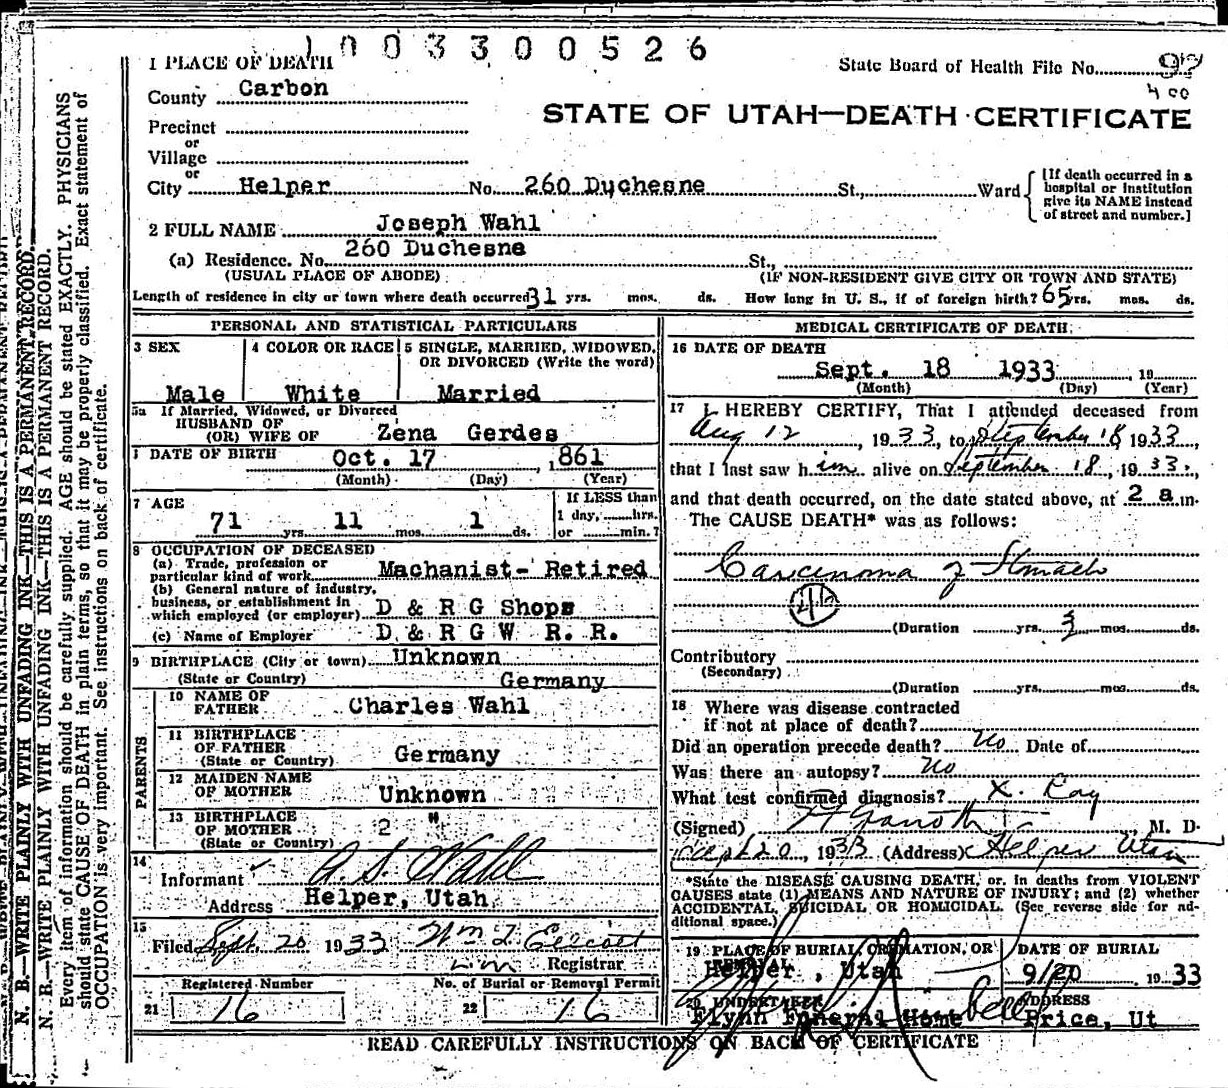 1003300526
1 PLACE OF DEATH
State Board of Health File No. 97
400
County Carbon
STATE OF UTAH—DEATH CERTIFICATE
Precinct
or
Village
or
City Helper No. 260 Duchesne St., Ward
[If death occurred in a hospital or institution give its NAME instead of street and number.]
2 FULL NAME Joseph Wahl
(a) Residence. No. 260 Duchesne St.,
(USUAL PLACE OF ABODE) (IF NON-RESIDENT GIVE CITY OR TOWN AND STATE)
Length of residence in city or town where death occurred 31 yrs. mos. ds. How long in U. S., if of foreign birth? 65 yrs. mos. ds.
PERSONAL AND STATISTICAL PARTICULARS
3 SEX
Male
4 COLOR OR RACE
White
5 SINGLE, MARRIED, WIDOWED, OR DIVORCED (Write the word)
Married
5a If Married, Widowed, or Divorced
HUSBAND OF
(OR) WIFE OF Zena Gerdes
DATE OF BIRTH Oct. 17, 1861
(Month) (Day) (Year)
7 AGE
71 yrs. 11 mos. 1 ds.
If LESS than
1 day, hrs.
or min.?
8 OCCUPATION OF DECEASED
(a) Trade, profession or
particular kind of work Machanist- Retired
(b) General nature of industry,
business, or establishment in
which employed (or employer) D & R G Shops
(c) Name of Employer D & R G W R. R.
9 BIRTHPLACE (City or town) Unknown
(State or Country) Germany
PARENTS
10 NAME OF
FATHER Charles Wahl
11 BIRTHPLACE
OF FATHER
(State or Country) Germany
12 MAIDEN NAME
OF MOTHER Unknown
13 BIRTHPLACE
OF MOTHER 2 "
(State or Country)
14
Informant A. S. Wahl
Address Helper, Utah
15
Filed Sept. 20 1933
Registrar
Registered Number
21 16
No. of Burial or Removal Permit
22 16
MEDICAL CERTIFICATE OF DEATH
16 DATE OF DEATH
Sept. 18 1933 19
(Month) (Day) (Year)
17 I HEREBY CERTIFY, That I attended deceased from
Aug 12, 1933, to September 18 1933,
that I last saw him alive on September 18, 1933.
and that death occurred, on the date stated above, at 2 a.m.
The CAUSE DEATH* was as follows:
Carcinoma of Stomach
(Duration yrs. 3 mos. ds.
Contributory
(Secondary)
(Duration yrs. mos. ds.
18 Where was disease contracted
if not at place of death?
Did an operation precede death? No Date of
Was there an autopsy? No
What test confirmed diagnosis? X. Ray
(Signed) M. D.
Sept 20, 1933 (Address) Helper Utah
*State the DISEASE CAUSING DEATH, or. in deaths from VIOLENT
CAUSES state (1) MEANS AND NATURE OF INJURY; and (2) whether
ACCIDENTAL, SUICIDAL OR HOMICIDAL. (See reverse side for ad-
ditional space.)
19 PLACE OF BURIAL, CREMATION, OR REMOVAL
Helper, Utah
DATE OF BURIAL
9/20, 1933
20 UNDERTAKER
Flynn Funeral Home
ADDRESS
Price, Ut
READ CAREFULLY INSTRUCTIONS ON BACK OF CERTIFICATE
N. B.—WRITE PLAINLY WITH UNFADING INK—THIS IS A PERMANENT RECORD.
N. B.—WRITE PLAINLY WITH UNFADING INK—THIS IS A PERMANENT RECORD.
Every item of information should be carefully supplied. AGE should be stated EXACTLY. PHYSICIANS
should state CAUSE OF DEATH in plain terms, so that it may be properly classified. Exact statement of
OCCUPATION is very important. See instructions on back of certificate.